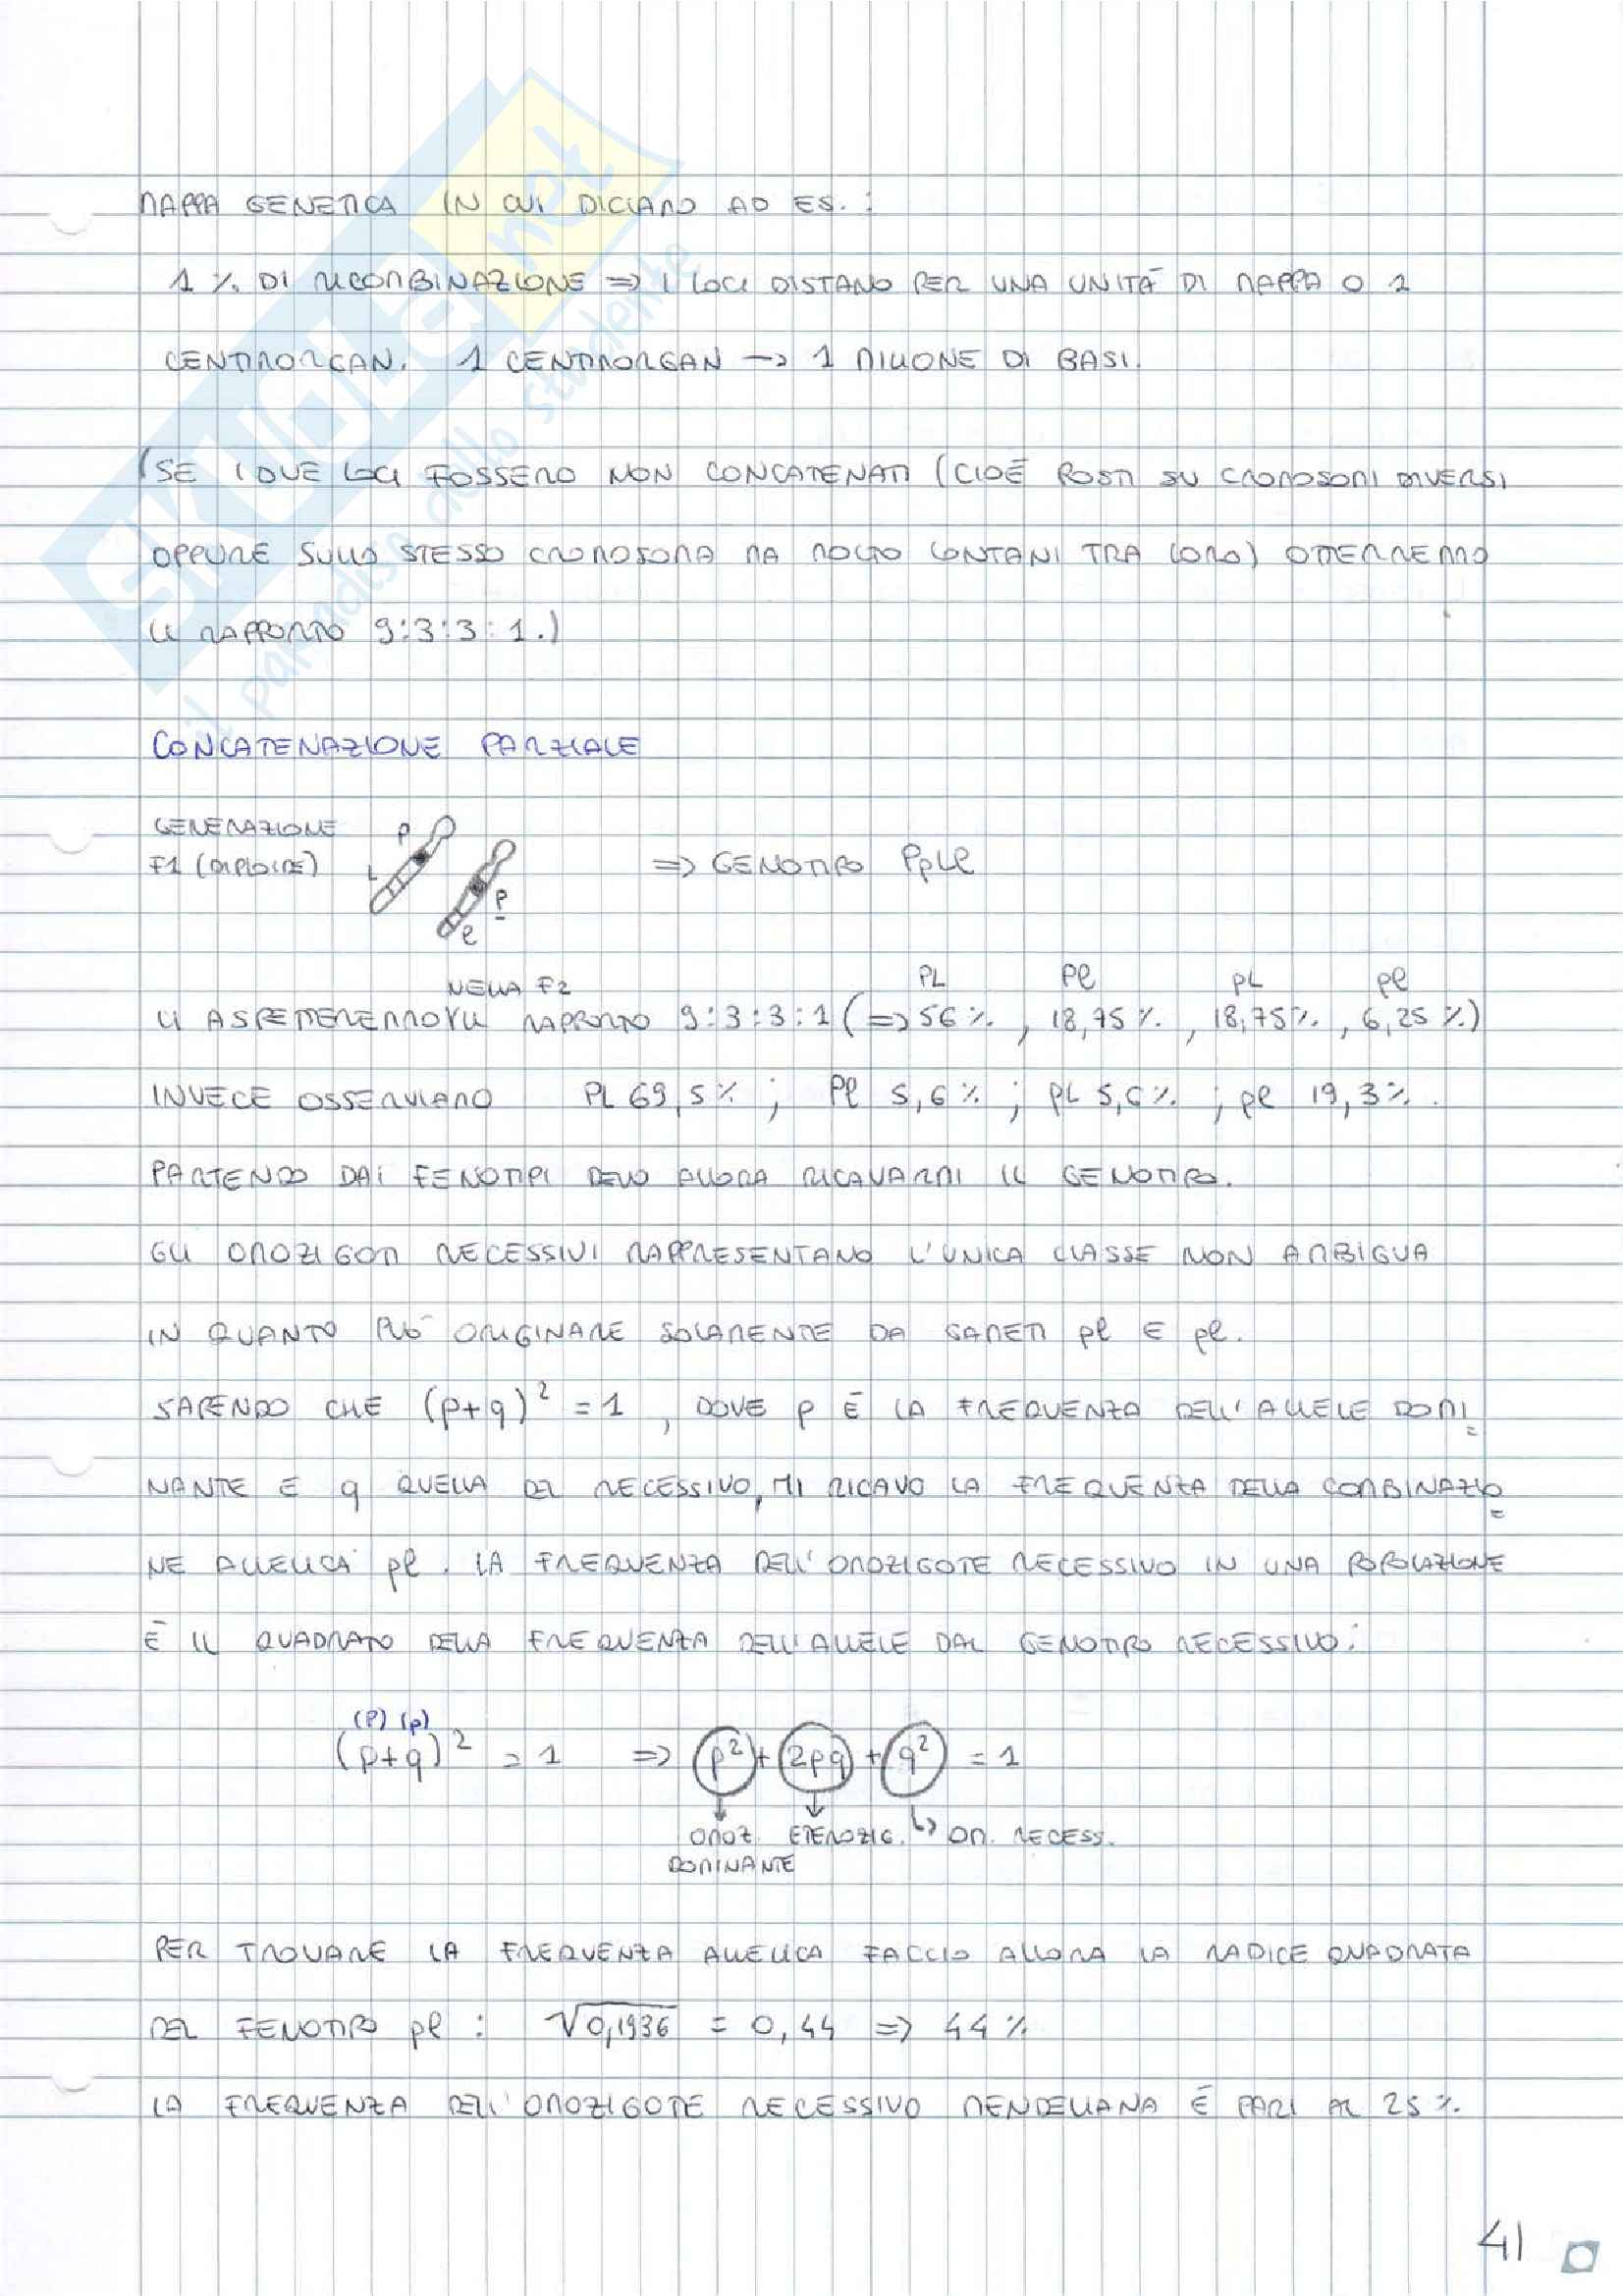 MAPPA GENETICA IN CUI DICIAMO AD ES. :
1 % DI RICOMBINAZIONE => I LOCI DISTANO PER UNA UNITÀ DI MAPPA O 1
CENTIMORGAN. 1 CENTIMORGAN -> 1 MILIONE DI BASI.
(SE I DUE LOCI FOSSERO NON CONCATENATI (CIOÈ POSTI SU CROMOSOMI DIVERSI
OPPURE SULLO STESSO CROMOSOMA MA MOLTO LONTANI TRA LORO) OTTERREMMO
IL RAPPORTO 9:3:3:1.)
CONCATENAZIONE PARZIALE
GENERAZIONE
F1 (DIPLOIDE)
P
L
p
l
=> GENOTIPO PpLl
NELLA F2
PL Pl pL pl
CI ASPETTEREMMO IL RAPPORTO 9:3:3:1 (=> 56 %, 18,75 %, 18,75 %, 6,25 %)
INVECE OSSERVIAMO PL 69,5 % ; Pl 5,6 % ; pL 5,6 % ; pl 19,3 %.
PARTENDO DAI FENOTIPI DEVO ALLORA RICAVARMI IL GENOTIPO.
GLI OMOZIGOTI RECESSIVI RAPPRESENTANO L'UNICA CLASSE NON AMBIGUA
IN QUANTO PUÒ ORIGINARE SOLAMENTE DA GAMETI pl E pl.
SAPENDO CHE (p+q)² = 1, DOVE p È LA FREQUENZA DELL'ALLELE DOMI=
NANTE E q QUELLA DEL RECESSIVO, MI RICAVO LA FREQUENZA DELLA COMBINAZIO=
NE ALLELICA pl. LA FREQUENZA DELL'OMOZIGOTE RECESSIVO IN UNA POPOLAZIONE
È IL QUADRATO DELLA FREQUENZA DELL'ALLELE DAL GENOTIPO RECESSIVO:
(P) (p)
(p+q)² = 1 => p² + 2pq + q² = 1
OMOZ. ETEROZIG. OM. RECESS.
DOMINANTE
PER TROVARE LA FREQUENZA ALLELICA FACCIO ALLORA LA RADICE QUADRATA
DEL FENOTIPO pl : √0,1936 = 0,44 => 44 %
LA FREQUENZA DELL'OMOZIGOTE RECESSIVO MENDELIANA È PARI AL 25 %.
41
SKUOLA.net
il paradiso dello studente